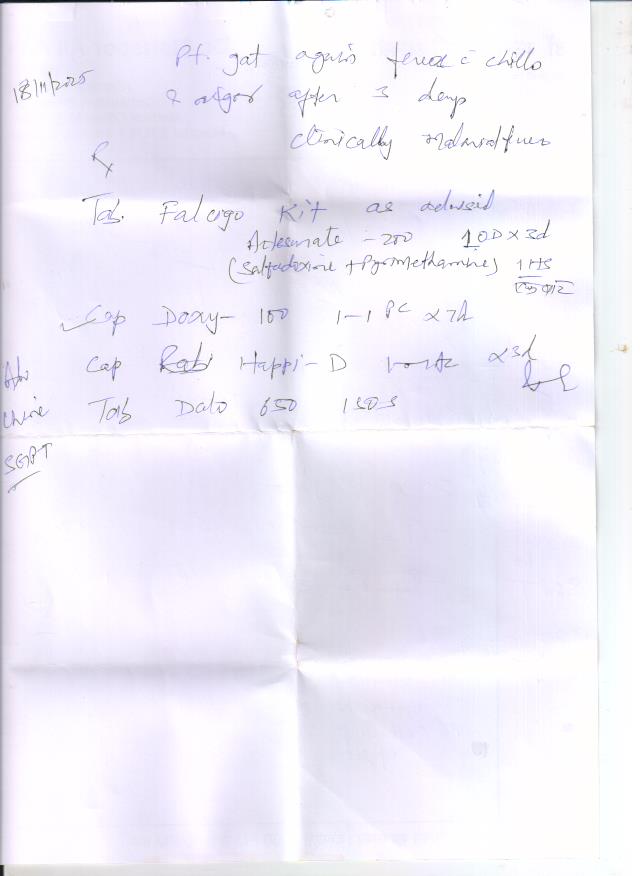 18/11/2025
Pt. gat again fever c̄ chills
& rigor after 3 days
clinically malarial fever
Rx
Tab. Falcigo Kit as advised
Artesunate - 200 1 OD x 3d
(Sulfadoxine + Pyrimethamine) 1 HS
Cap Doxy - 100 1-1 PC x 7d
Adv Cap Happi - D x 3d
Urine Tab Dolo 650 1 SOS
SGPT